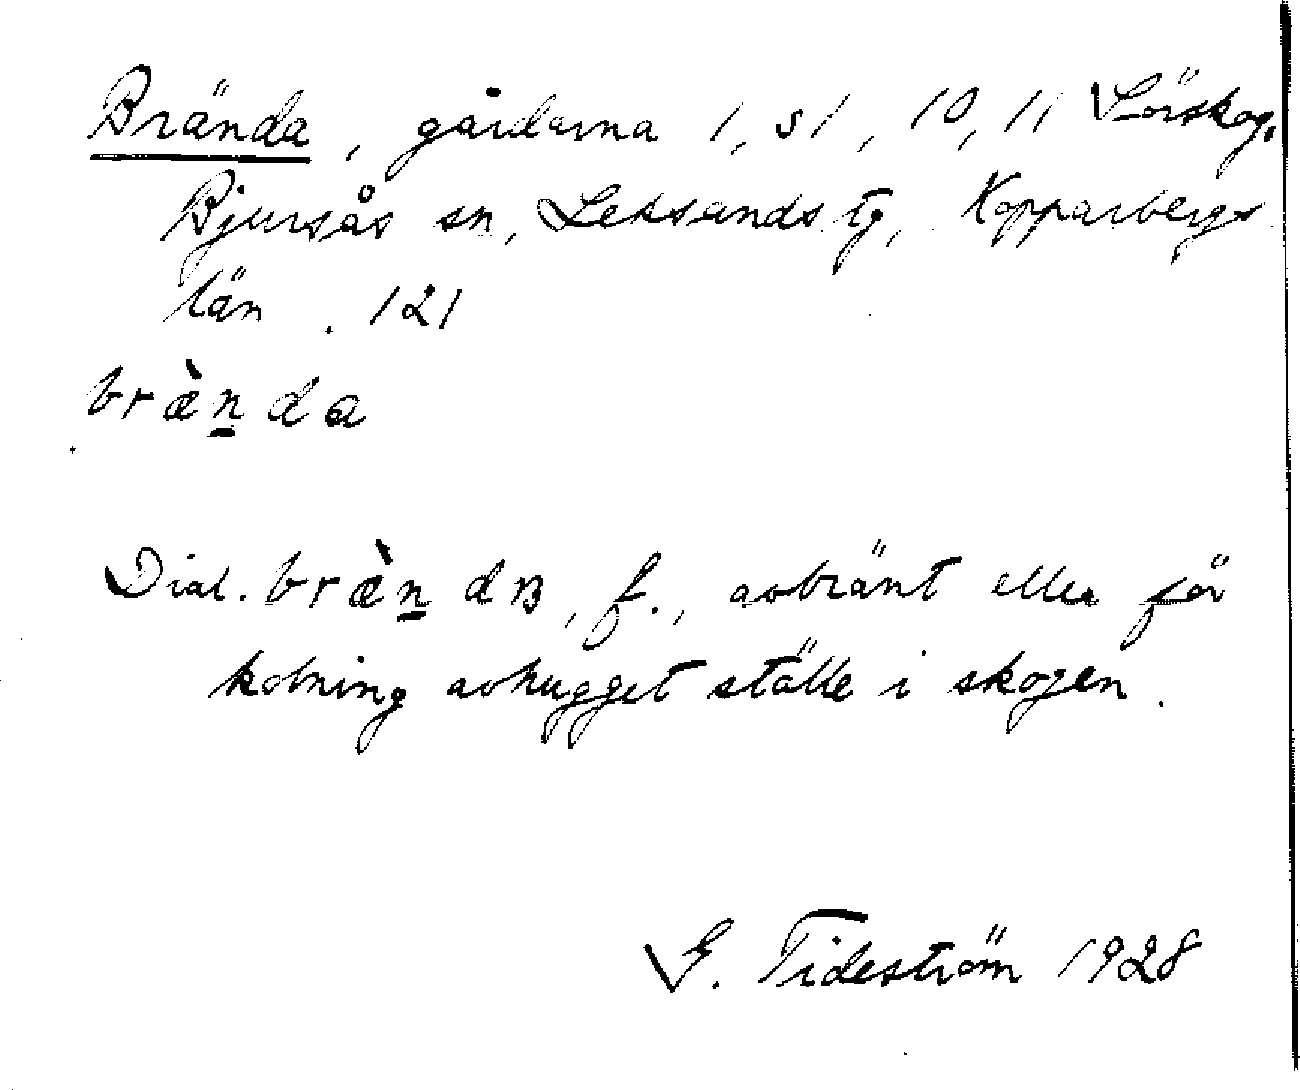 Brända, gårdarna 1, s1, 10, 11 Sörskog,
Bjursås sn, Leksands tg, Kopparbergs
län. 121
bræ̀n̲da
Dial. bræ̀n̲dB, f., avbränt eller för
kolning avhugget ställe i skogen.
G. Tideström 1928